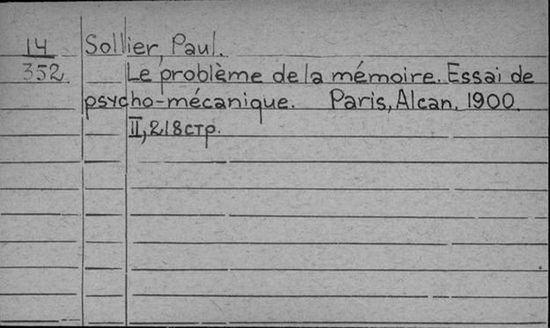 14
352
Sollier, Paul.
Le problème de la mémoire. Essai de
psycho-mécanique. Paris, Alcan, 1900.
II, 218 стр.